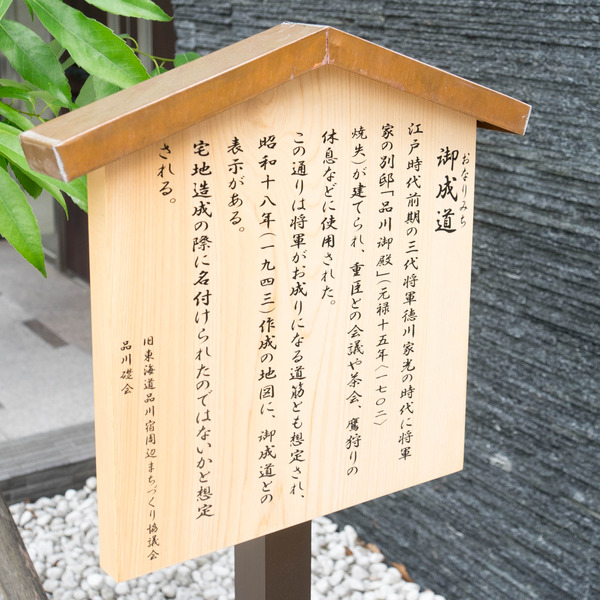 おなりみち
御成道
江戸時代前期の三代将軍徳川家光の時代に将軍
家の別邸「品川御殿」(元禄十五年〈一七〇二〉
焼失)が建てられ、重臣との会議や茶会、鷹狩りの
休息などに使用された。
この通りは将軍がお成りになる道筋とも想定され、
昭和十八年(一九四三)作成の地図に、御成道との
表示がある。
宅地造成の際に名付けられたのではないかと想定
される。
旧東海道品川宿周辺まちづくり協議会
品川礎会